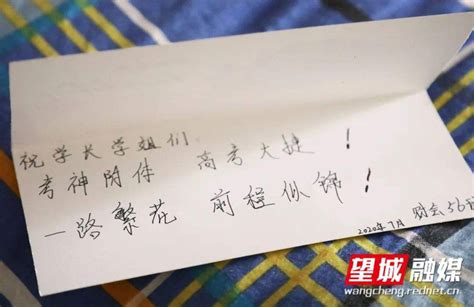 祝学长学姐们:
考神附体 高考大捷!
一路繁花 前程似锦!
2020年7月 财会56
望城融媒
wangcheng.rednet.cn